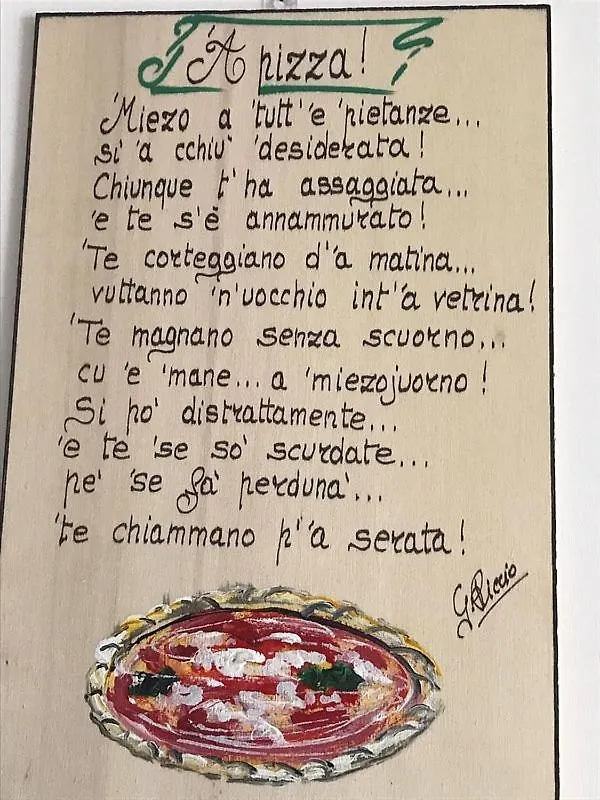 'A pizza!
'Miezo a 'tutt' 'e 'pietanze...
si' 'a cchiu' 'desiderata!
Chiunque t'ha assaggiata...
'e te s'è annammurato!
'Te corteggiano d''a matina...
vuttanno 'n'uocchio int''a vetrina!
'Te magnano senza scuorno...
cu 'e 'mane... a 'miezojuorno!
Si po' distrattamente...
'e te 'se so' scurdate...
pe' 'se fa' perduna'...
'te chiammano p''a serata!